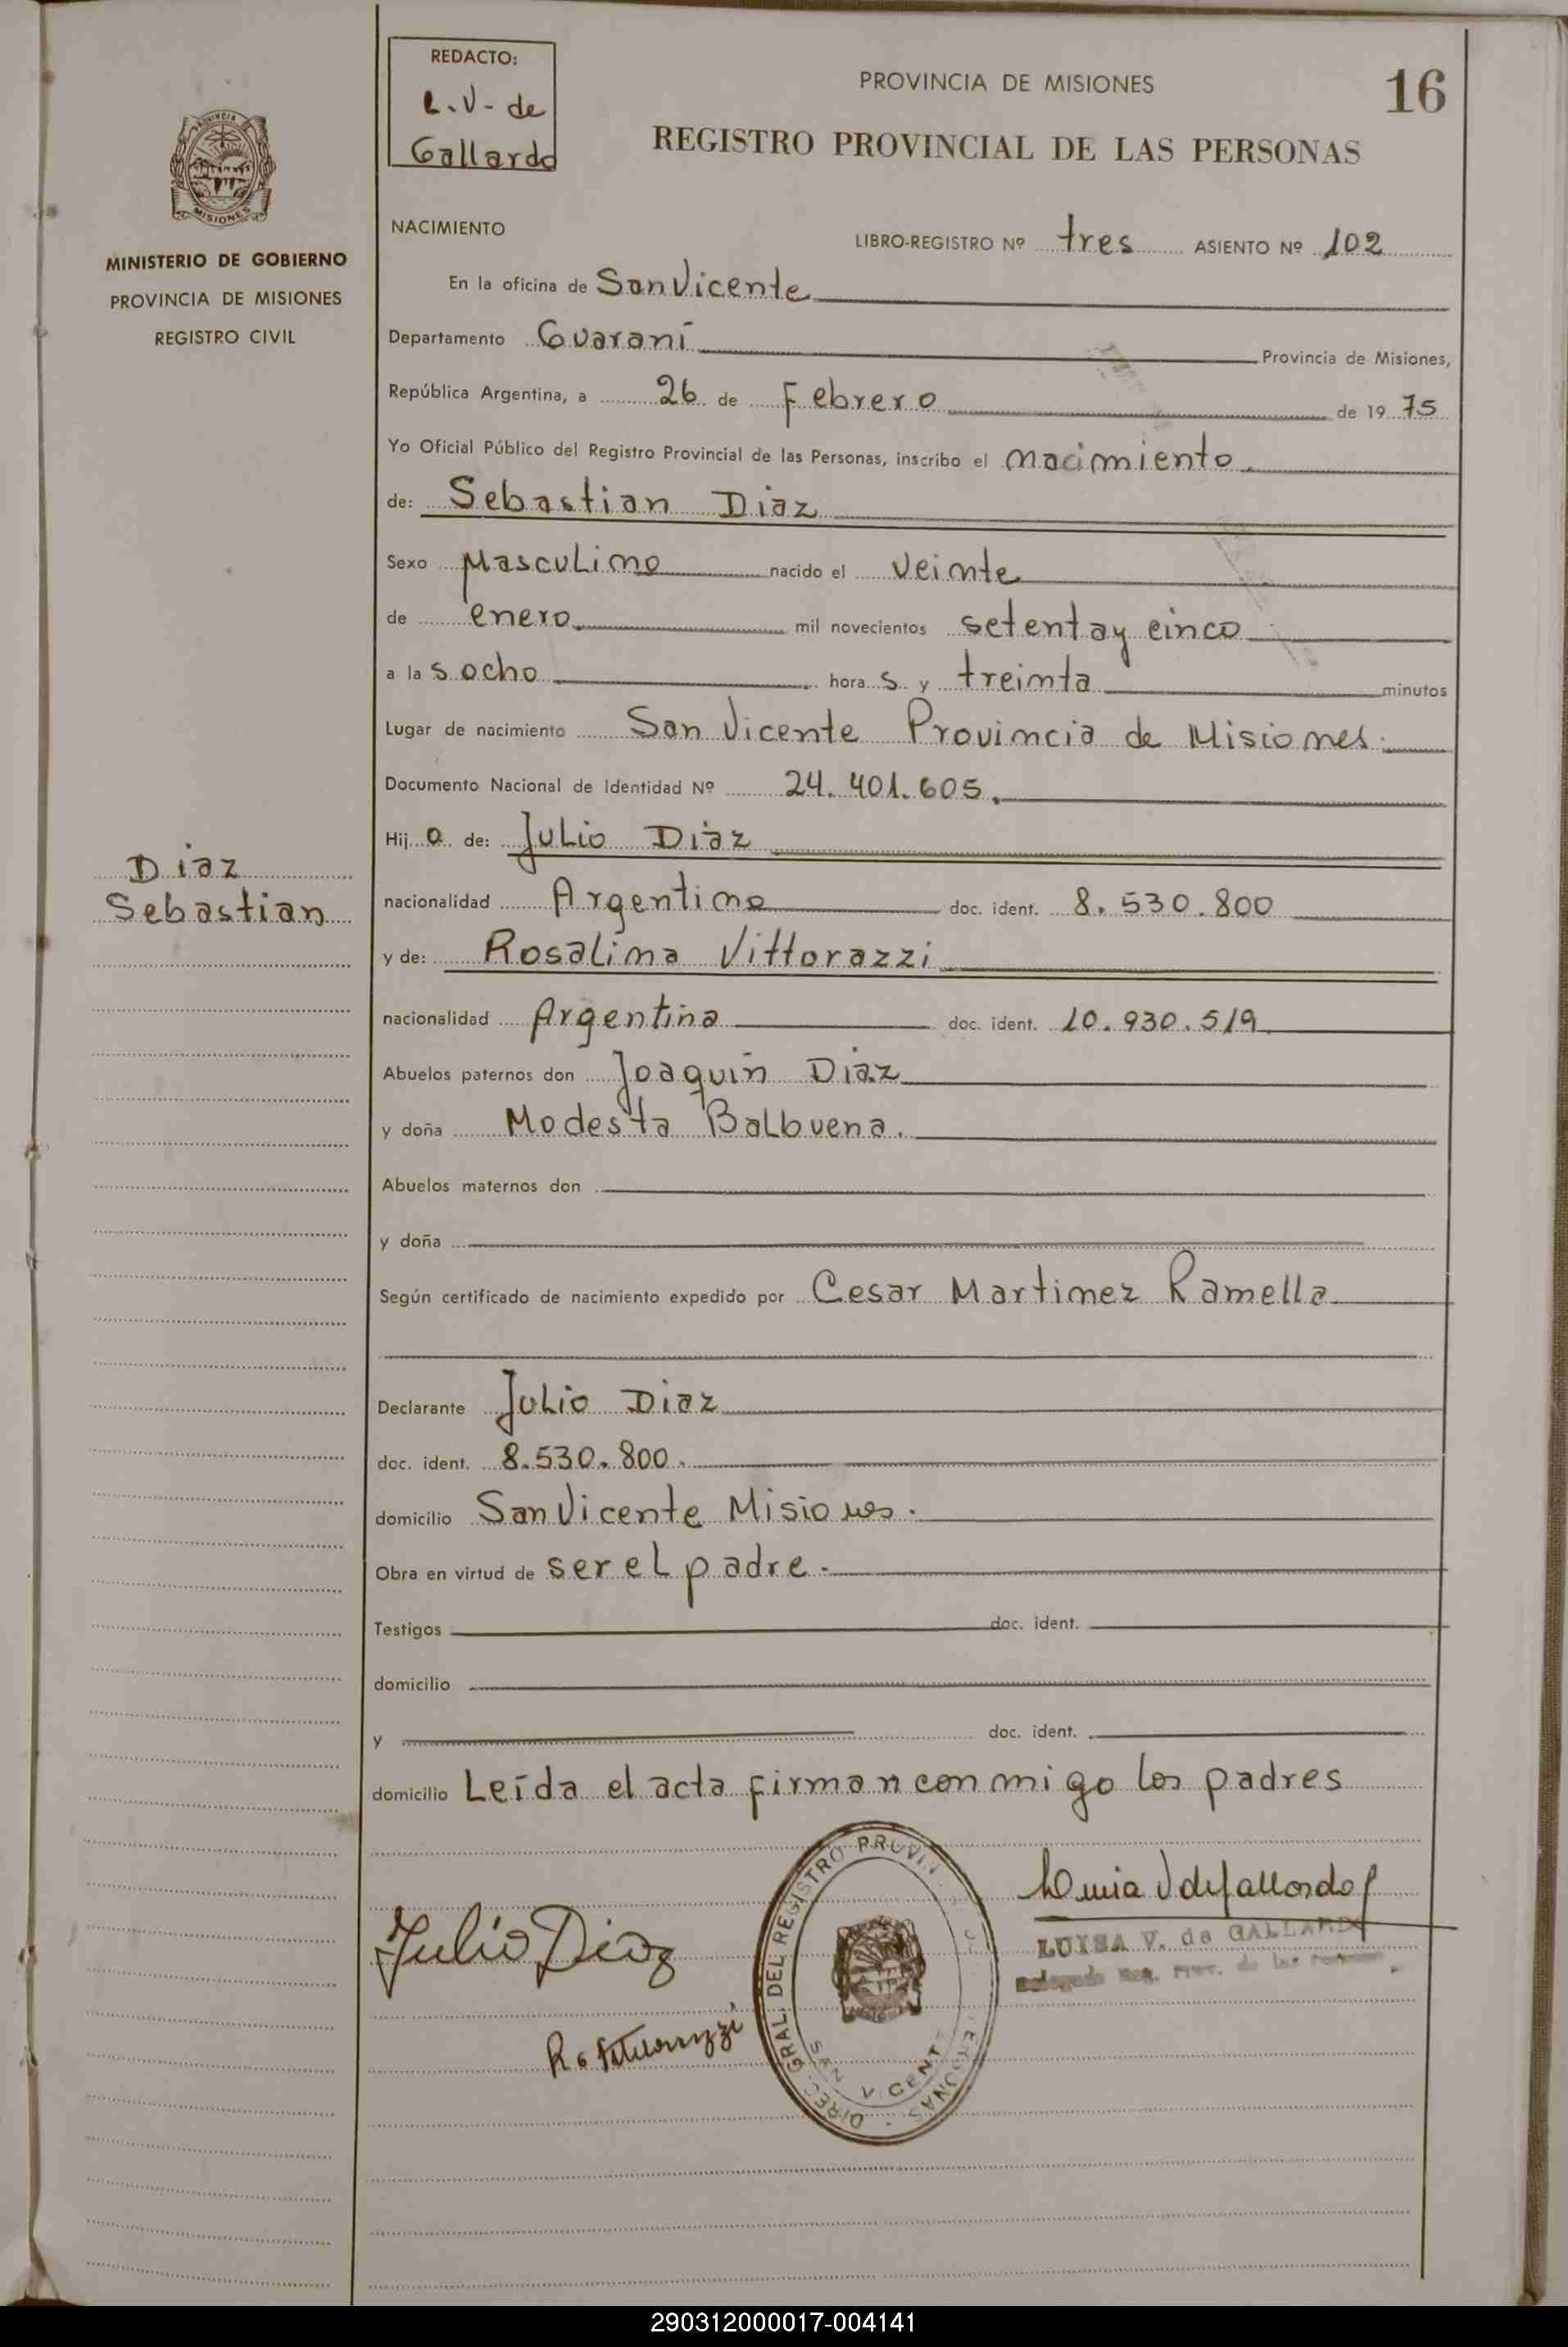 REDACTO:
L.V- de
Gallardo
PROVINCIA DE MISIONES
16
REGISTRO PROVINCIAL DE LAS PERSONAS
PROVINCIA DE
MISIONES
MINISTERIO DE GOBIERNO
PROVINCIA DE MISIONES
REGISTRO CIVIL
NACIMIENTO
LIBRO-REGISTRO Nº tres ASIENTO Nº 102
En la oficina de San Vicente
Departamento Guaraní Provincia de Misiones,
República Argentina, a 26 de Febrero de 1975
Yo Oficial Público del Registro Provincial de las Personas, inscribo el nacimiento.
de: Sebastian Diaz
Sexo Masculino nacido el veinte
de enero mil novecientos setenta y cinco
a las ocho horas y treinta minutos
Lugar de nacimiento San Vicente Provincia de Misiones.
Documento Nacional de Identidad Nº 24.401.605.
Hijo de: Julio Diaz
Diaz
Sebastian
nacionalidad Argentino doc. ident. 8.530.800
y de: Rosalina Vittorazzi
nacionalidad Argentina doc. ident. 10.930.519
Abuelos paternos don Joaquín Diaz
y doña Modesta Balbuena.
Abuelos maternos don
y doña
Según certificado de nacimiento expedido por Cesar Martinez Ramella
Declarante Julio Diaz
doc. ident. 8.530.800.
domicilio San Vicente Misiones.
Obra en virtud de ser el padre.
Testigos doc. ident.
domicilio
y doc. ident.
domicilio Leída el acta firman conmigo los padres
Julio Diaz
LUISA V. de GALLARDO
DIREC. GRAL. DEL REGISTRO
SAN VICENTE
290312000017-004141